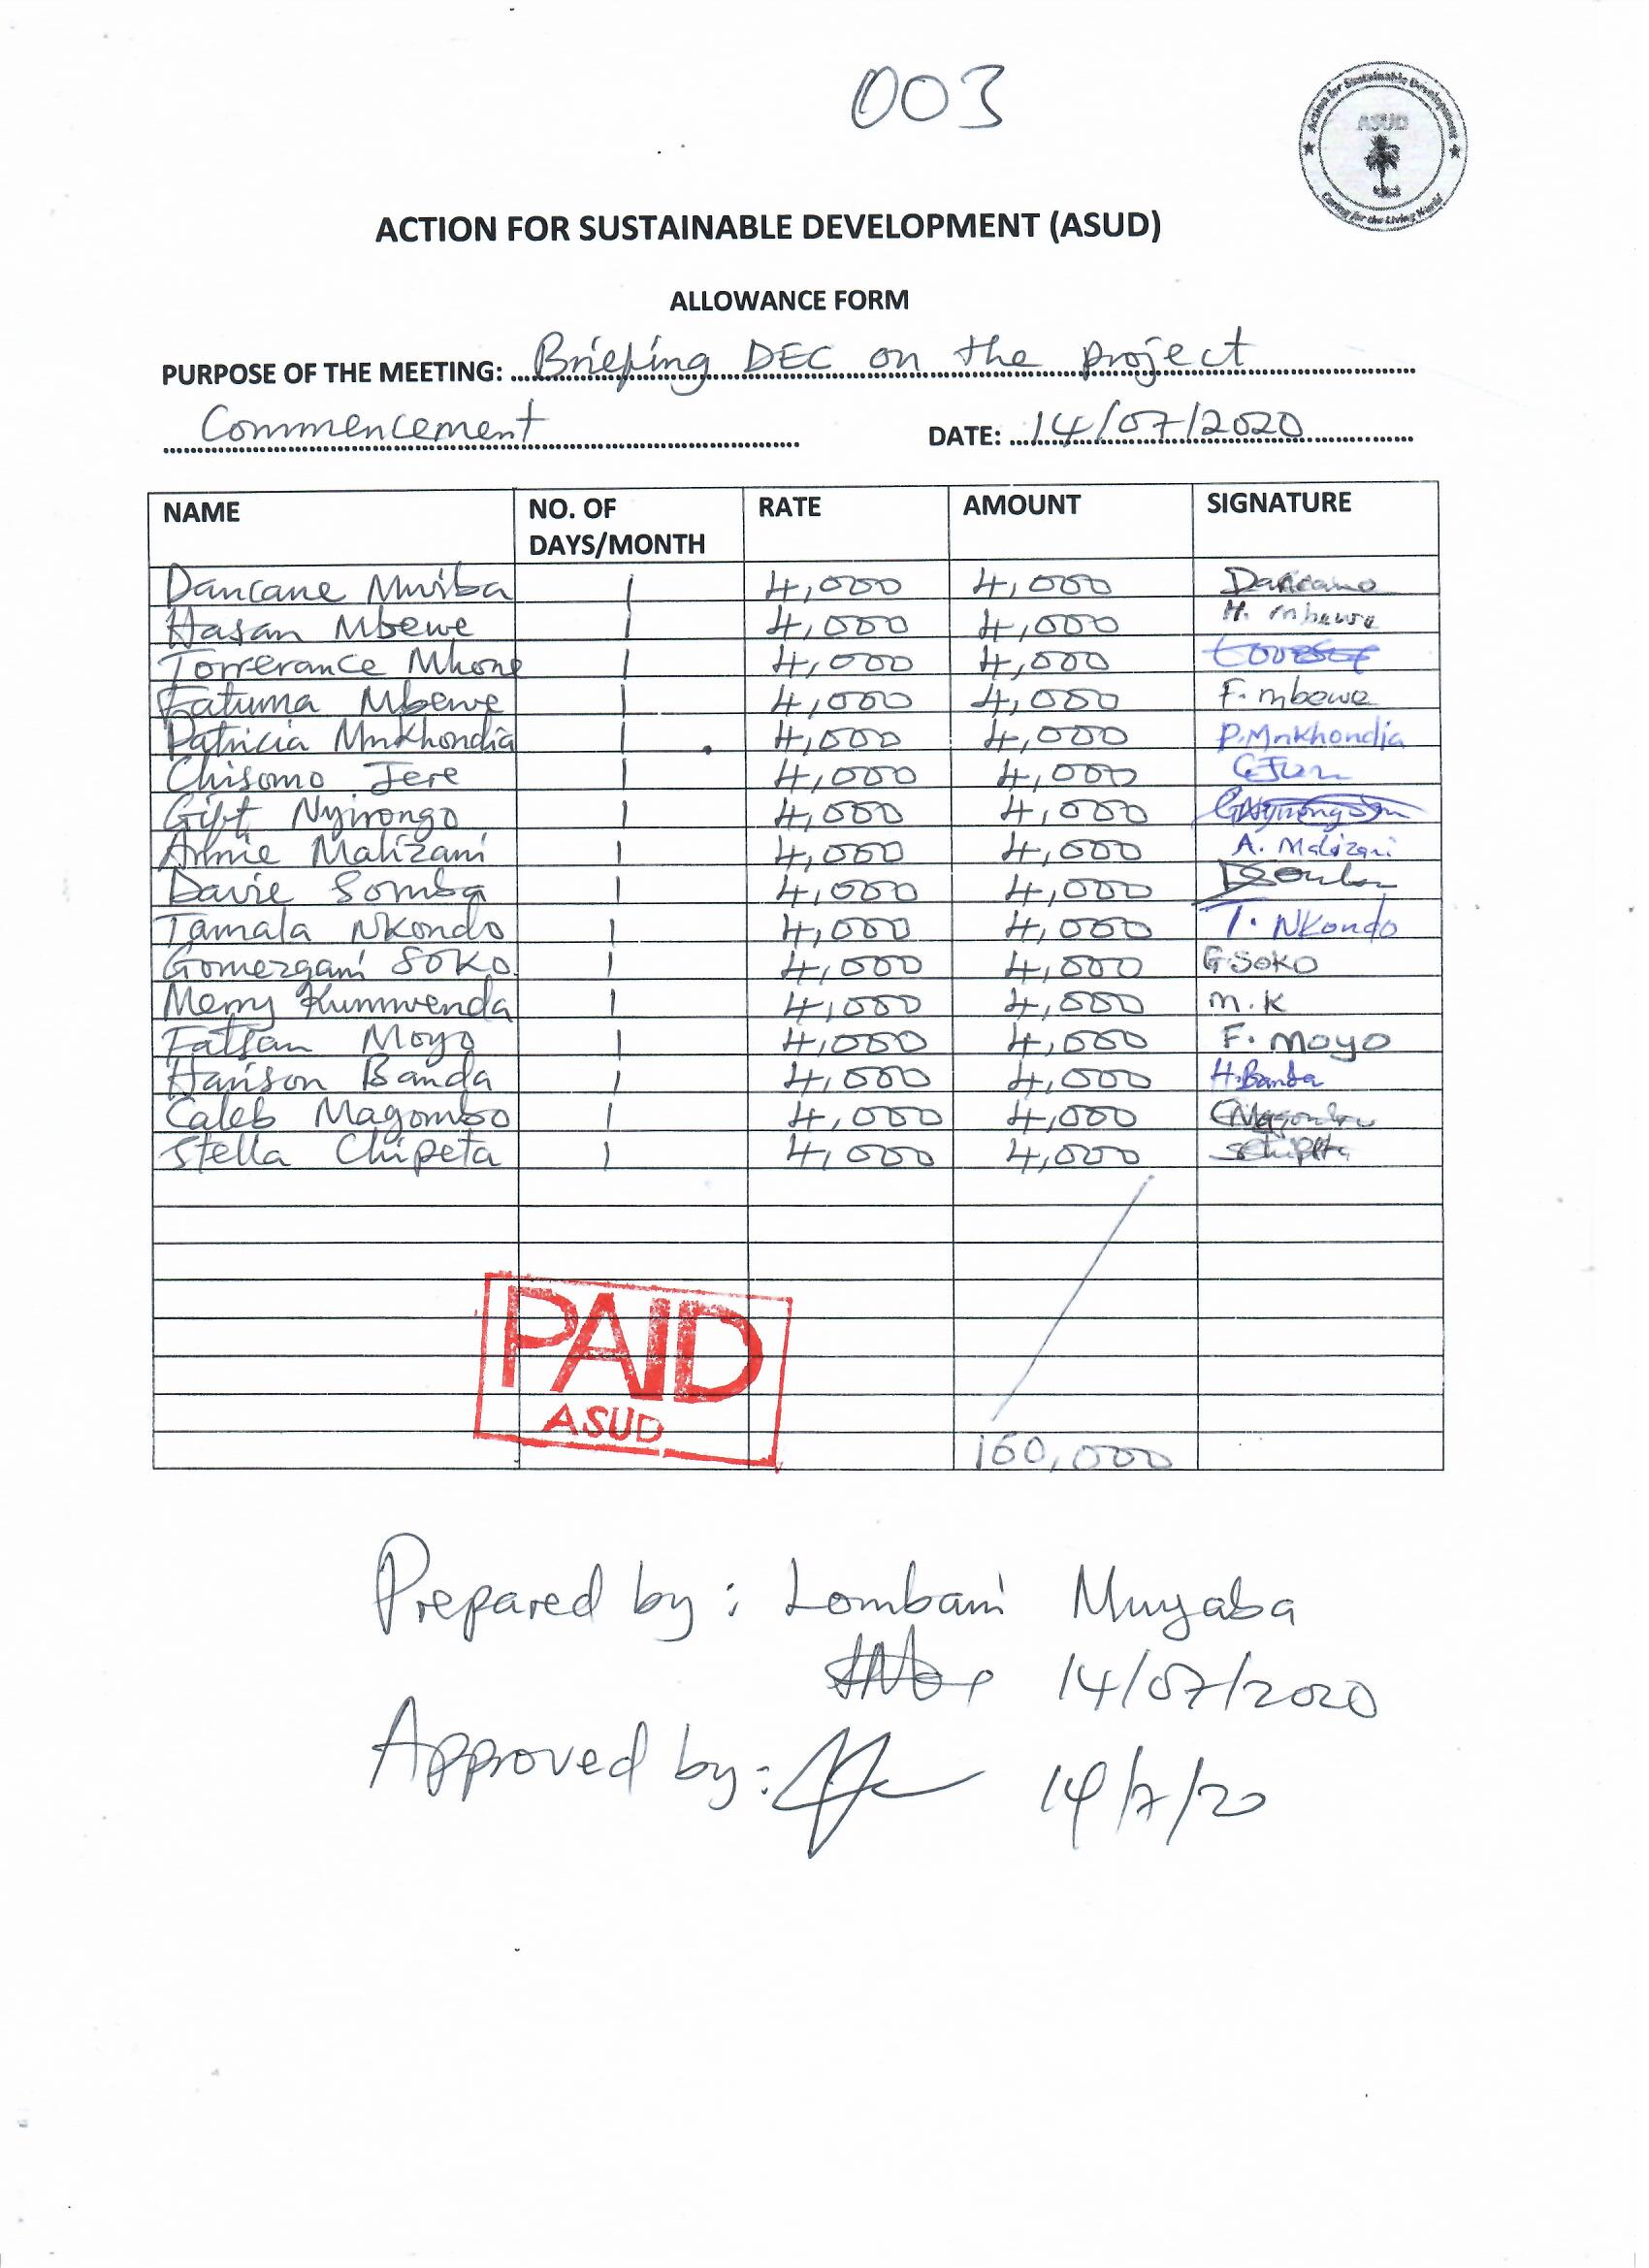 003
Action for Sustainable Development
ASUD
Caring for the Living World
ACTION FOR SUSTAINABLE DEVELOPMENT (ASUD)
ALLOWANCE FORM
PURPOSE OF THE MEETING: Briefing DEC on the project
Commencement DATE: 14/07/2020
NAME NO. OF DAYS/MONTH RATE AMOUNT SIGNATURE
Dancane Mwiba 1 4,000 4,000 Dancane
Hasan Mbewe 1 4,000 4,000 H. Mbewe
Torrerance Mhone 1 4,000 4,000
Fatuma Mbewe 1 4,000 4,000 F. mbewe
Patricia Mnkhondia 1 4,000 4,000 P.Mnkhondia
Chisomo Jere 1 4,000 4,000
Gift Nyirongo 1 4,000 4,000 GNyirongo
Annie Malizani 1 4,000 4,000 A. Malizani
Davie Somba 1 4,000 4,000
Tamala Nkondo 1 4,000 4,000 T. NKondo
Gomezgani Soko 1 4,000 4,000 G SOKO
Merry Kumwenda 1 4,000 4,000 m.K
Fatsan Moyo 1 4,000 4,000 F. moyo
Harison Banda 1 4,000 4,000 H.Banda
Caleb Magombo 1 4,000 4,000 CMagombo
Stella Chipeta 1 4,000 4,000 schipeta
PAID
ASUD
160,000
Prepared by: Lombani Muyaba
14/07/2020
Approved by: 14/7/20